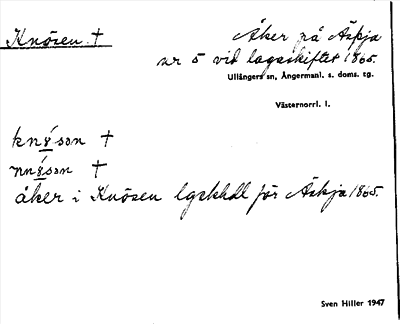 Knösen. †
Åker på Äskja
nr 5 vid lagaskiftet 1865.
Ullångers sn, Ångermanl. s. doms. tg.
Västernorrl. l.
knǿsən †
nnǿsən †
åker i Knösen lgskhdl för Äskja 1865.
Sven Hiller 1947